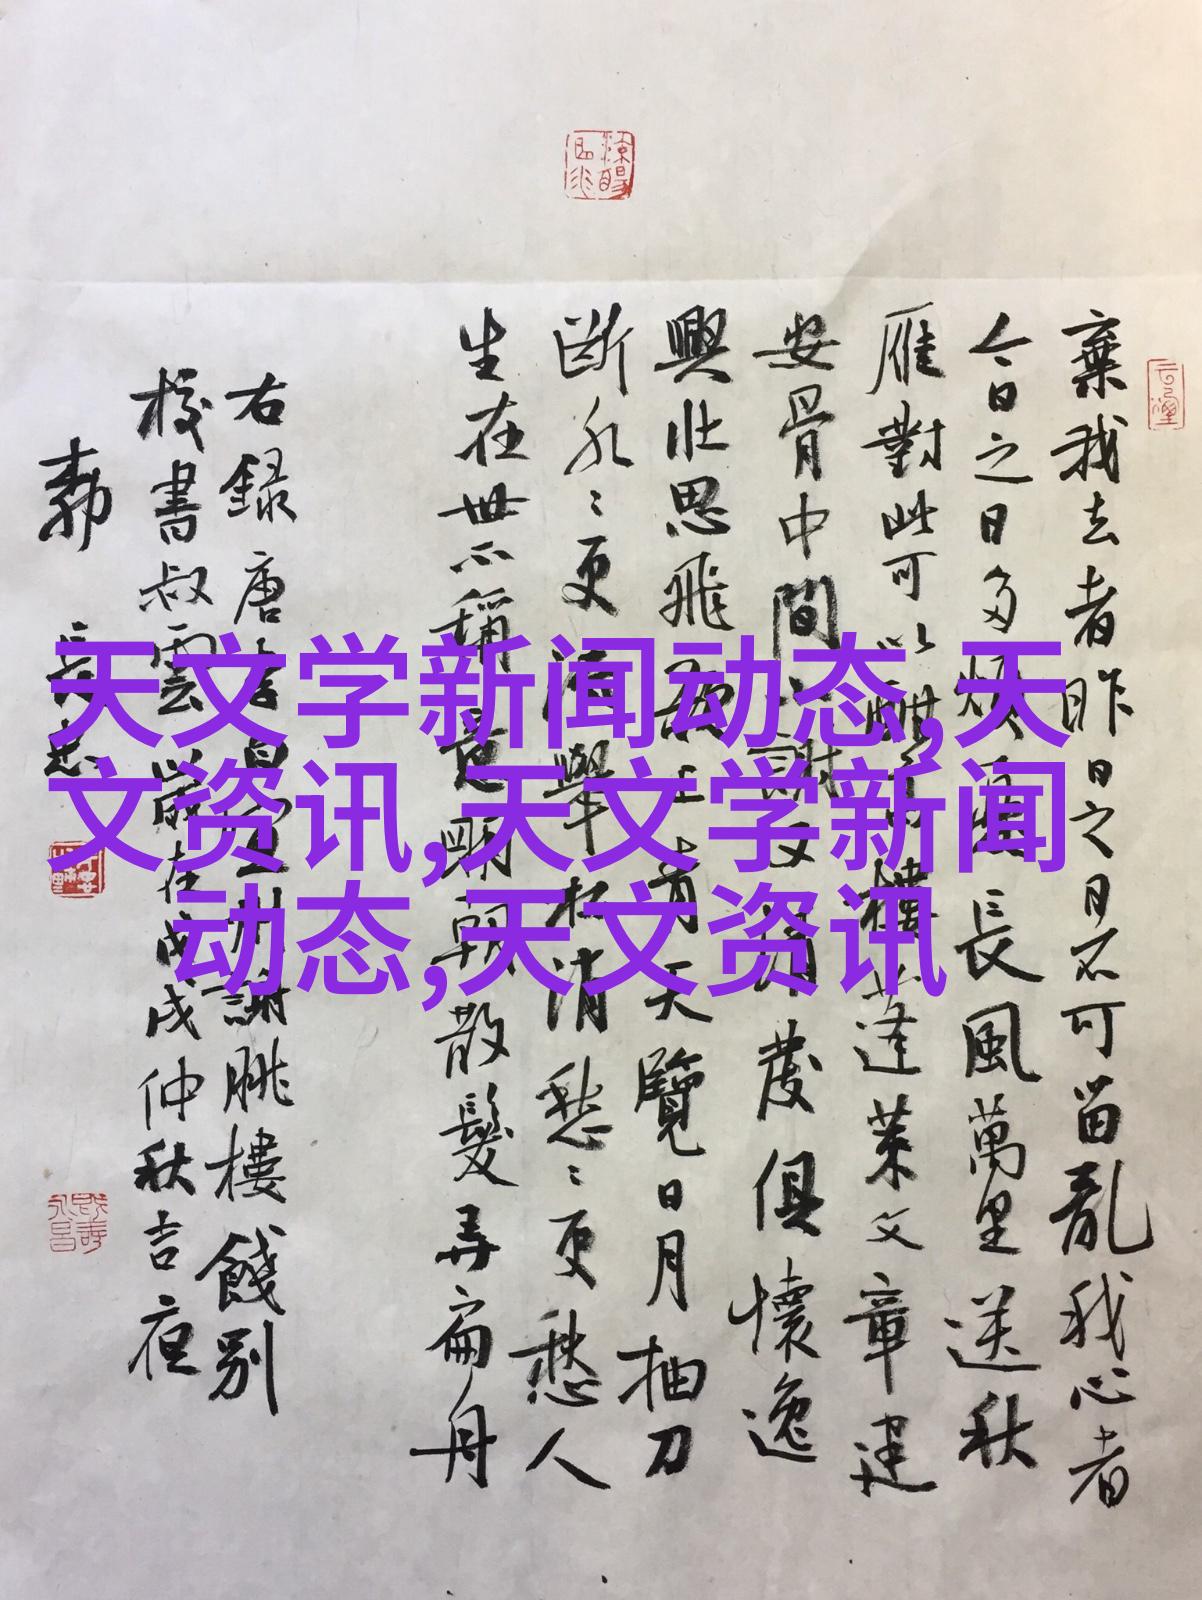 棄我去者昨日之日不可留亂我心者
今日之日多煩憂長風萬里送秋
雁對此可以酣高樓蓬萊文章建
安骨中間小謝又清發俱懷逸
興壯思飛欲上青天覽日月抽刀
斷水〻更流舉杯消愁〻更愁人
生在世不稱意明朝散髮弄扁舟
右録唐李白宣州謝朓樓餞别
校書叔雲歲在戊戌仲秋吉夜
天文学新闻动态,天
文资讯,天文学新闻
动态,天文资讯